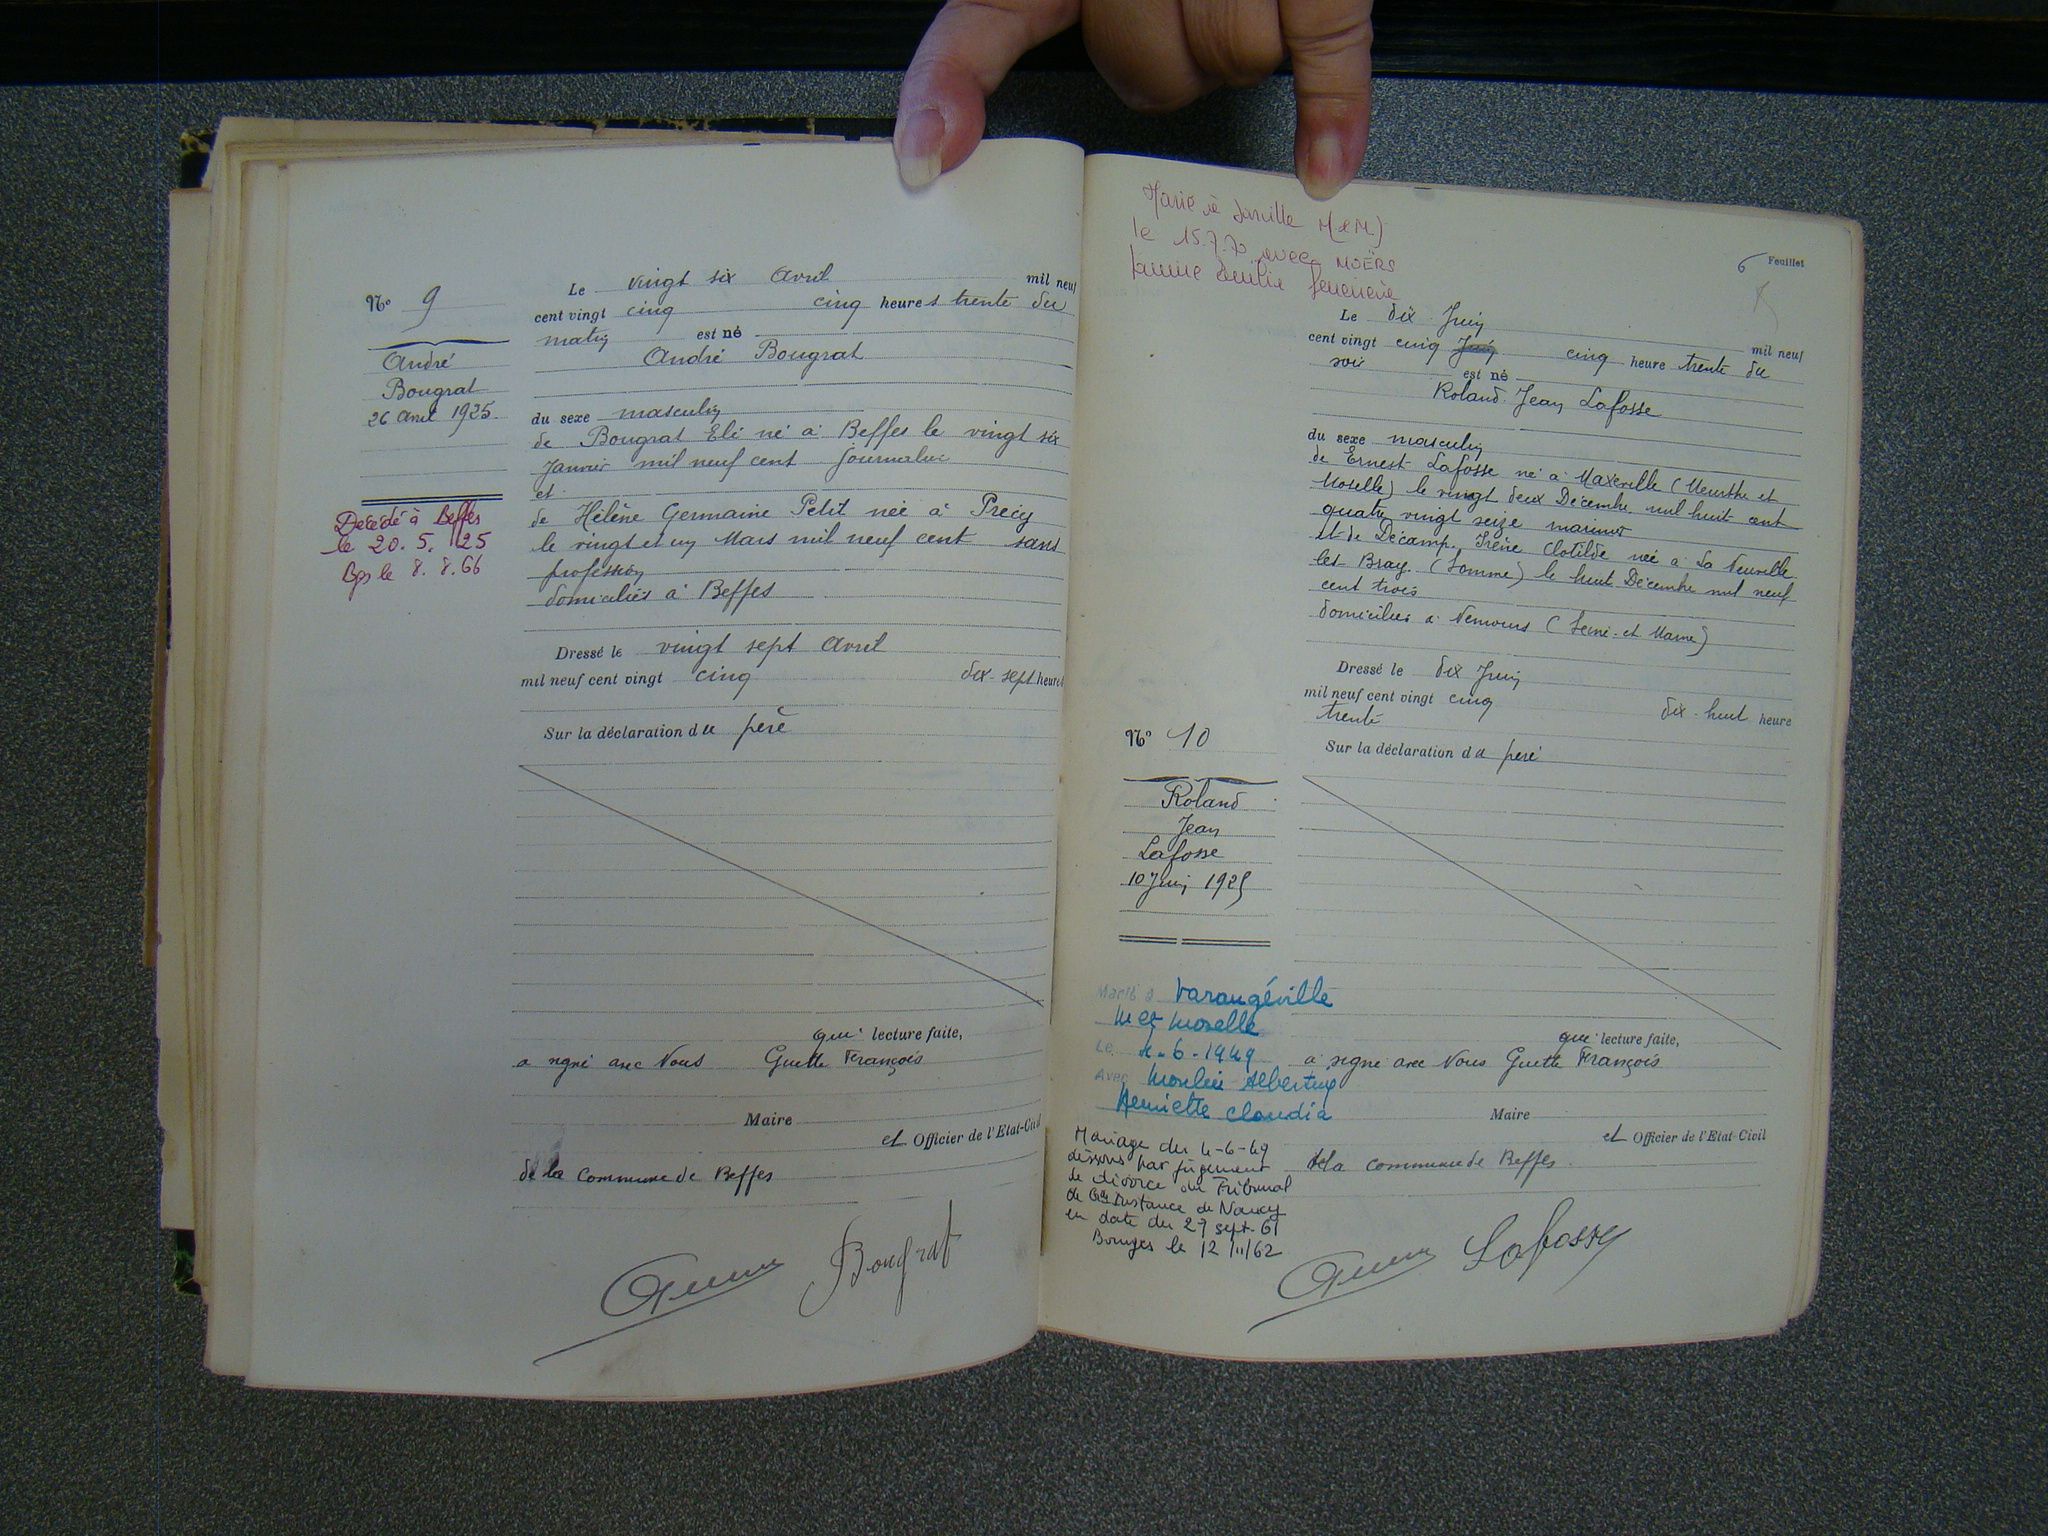 Nº 9
André
Bougrat
26 Avril 1925
Décédé à Beffes
le 20. 5. 125
Bgs le 8. 8. 66
Le vingt six Avril mil neuf
cent vingt cinq cinq heures trente du
matin est né
André Bougrat
du sexe masculin
de Bougrat Elie né à Beffes le vingt six
Janvier mil neuf cent journalier
et
de Hélène Germaine Petit née à Precy
le vingt et un Mars mil neuf cent sans
profession
domiciliés à Beffes
Dressé le vingt sept Avril
mil neuf cent vingt cinq dix-sept heures
Sur la déclaration du père
qui lecture faite,
a signé avec Nous Guette François
Maire
et Officier de l'Etat-Civil
de la commune de Beffes
Bougrat
Marié à M&M)
le 15.7.70 avec MOËRS
6 Feuillet
Le dix Juin mil neuf
cent vingt cinq Juin cinq heure trente du
soir est né
Roland Jean Lafosse
du sexe masculin
de Ernest Lafosse né à Maxéville (Meurthe et
Moselle) le vingt deux Décembre mil huit cent
quatre vingt seize marinier
et de Décamp Irène Clotilde née à La Neuville
les Bray (Somme) le huit Décembre mil neuf
cent trois
domiciliés à Nemours (Seine et Marne)
Dressé le dix Juin
mil neuf cent vingt cinq dix-huit heure
trente
Sur la déclaration du père
Nº 10
Roland
Jean
Lafosse
10 Juin 1925
Marié à Varangéville
M et Moselle
Le 4-6-1949
Avec Moulin Albertine
Henriette Claudia
Mariage du 4-6-49
dissous par jugement
de divorce du Tribunal
de Gde Instance de Nancy
en date du 27 sept. 61
Bourges le 12/11/62
qui lecture faite,
a signé avec Nous Guette François
Maire
et Officier de l'Etat-Civil
de la commune de Beffes
Lafosse